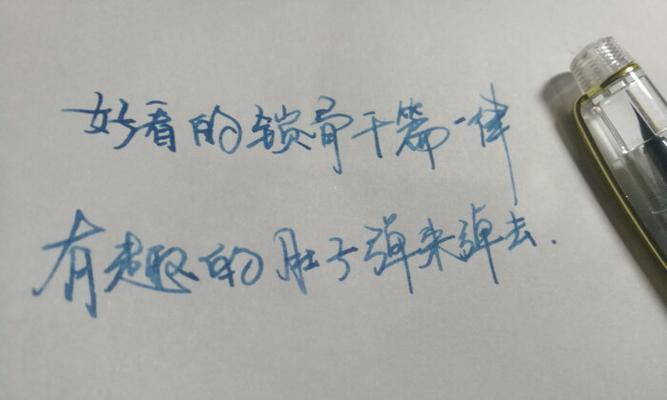 好看的锁骨千篇一律
有趣的肚子弹来弹去.